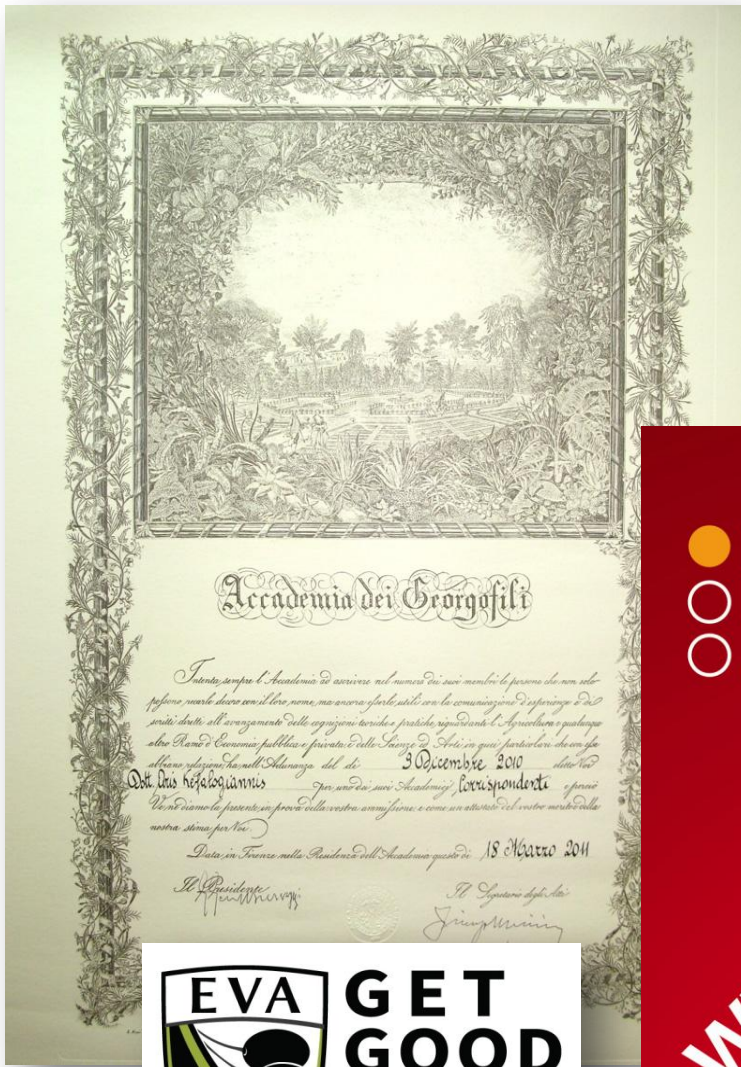 Accademia dei Georgofili
Intenta sempre l'Accademia ad ascrivere nel numero dei suoi membri le persone che non solo
possono recarle decoro con il loro nome, ma ancora esserle utili con la comunicazione d'esperienze o di
scritti diretti all'avanzamento delle cognizioni teoriche e pratiche riguardanti l'Agricoltura e qualunque
altro Ramo d'Economia pubblica e privata, e delle Scienze ed Arti in quei particolari che con esse
abbiano relazione, ha nell'Adunanza del dì 3 Dicembre 2010 eletto Voi
Dott. Aris Kefalogiannis per uno dei suoi Accademici Corrispondenti e perciò
Ve ne diamo la presente in prova della vostra ammissione e come un attestato del vostro merito e della
nostra stima per Voi.
Data in Firenze nella Residenza dell'Accademia questo dì 18 Marzo 2011
Il Presidente
Il Segretario degli Atti
EVA GET
GOOD